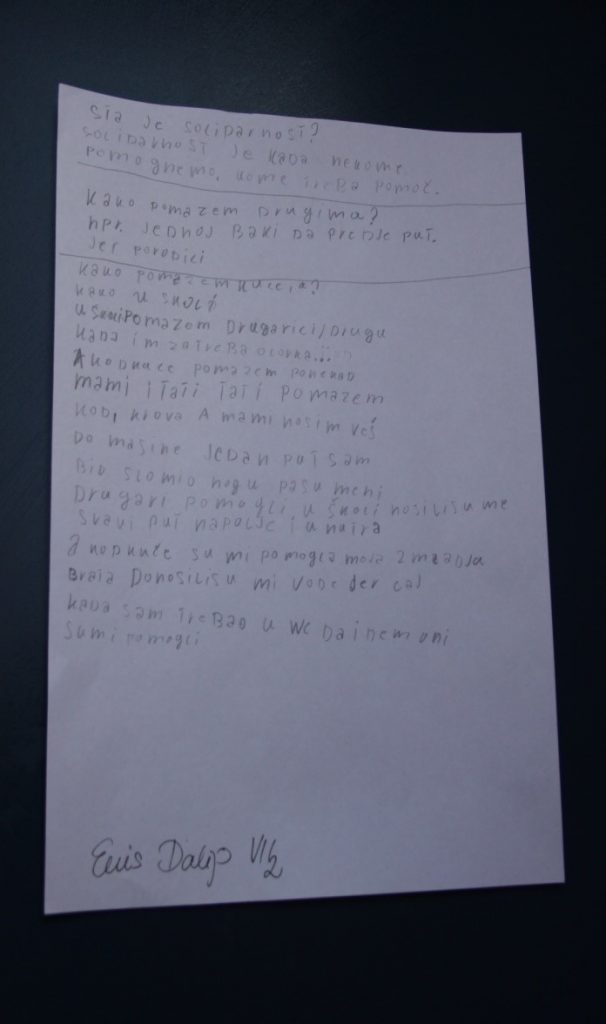 Šta je solidarnost?
solidarnost je kada nekome
pomognemo, kome treba pomoć.
Kako pomazem Drugima?
npr. jednoj Baki da predje put.
jer porodici
kako pomazem kući,a?
kako u školi
u školi pomazem Drugarici/Drugu
kada im zatreba
A kod kuce pomazem ponekad
mami i tati tati pomazem
kod, krova A mami nosim veš
Do masine jedan put sam
Bio slomio nogu pa su meni
Drugari pomogli u školi nosili su me
svavi put napolje i unutra
A kod kuće su mi pomogla moja 2 mladja
Brata Donosili su mi vode
kada sam trebao u WC da idem oni
su mi pomogli
Enis VI2